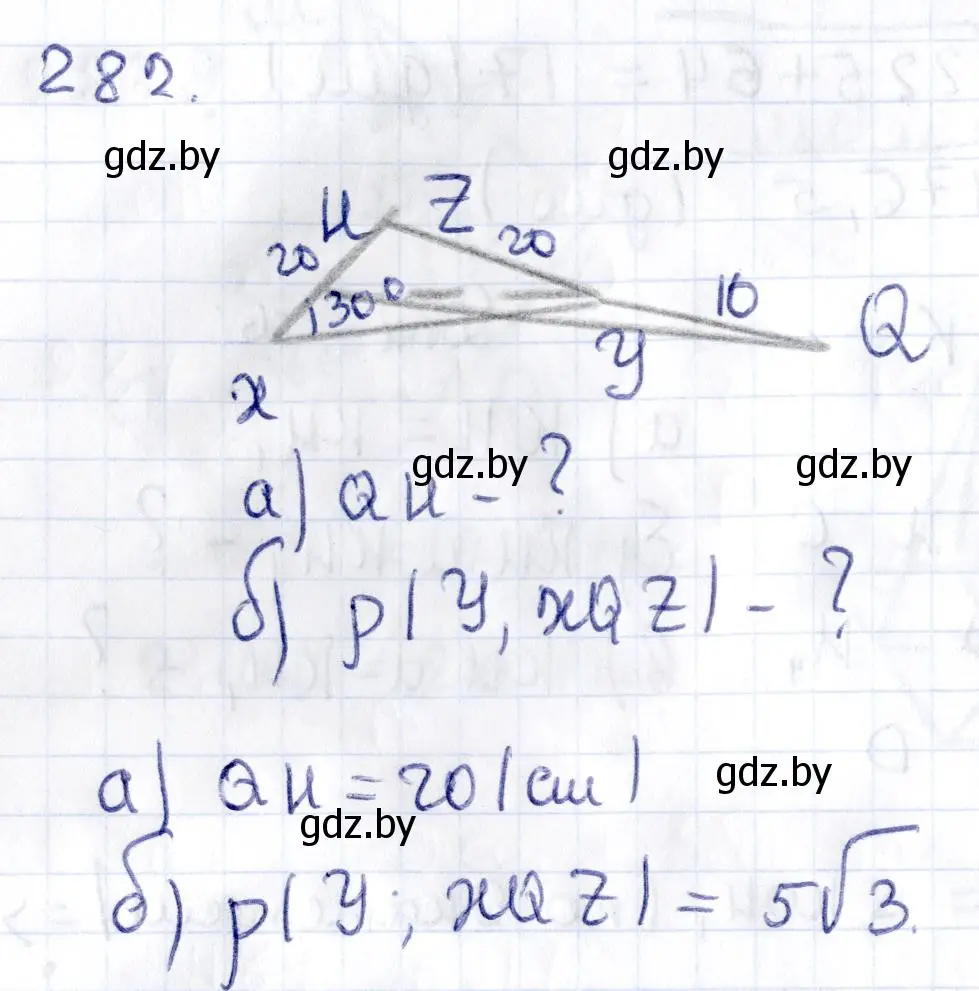 282.
gdz.by gdz.by
И Z
20 20
130° 10
Q
x y
gdz.by gdz.by
а) QИ - ?
б) p(У, xQZ) - ?
gdz.by
а) QИ = 20 (см)
gdz.by
б) p(У; xQZ) = 5√3.